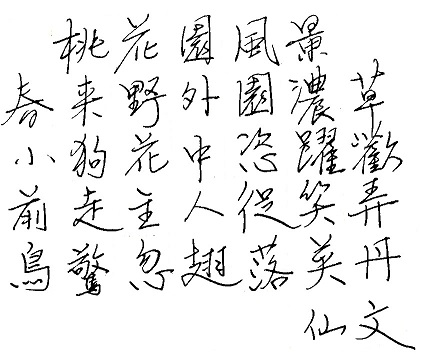 桃花園風景
春来野外園濃草
小狗花中恣躍歡
前走主人從笑弄
鳥驚忽翅落英丹
仙文